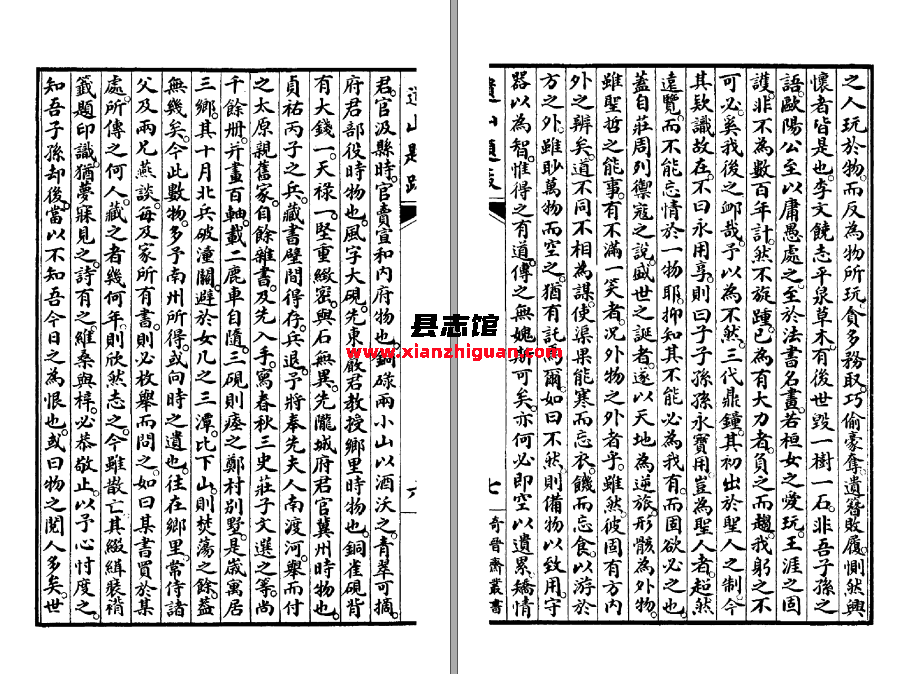 之人玩於物而反為物所玩貪多務取巧偷豪奪遺簪敗履惻然興
懷者皆是也李文饒志平泉草木有後世毀一樹一石非吾子孫之
語歐陽公至以庸愚處之至於法書名畫若桓玄之愛玩王涯之固
護非不為數百年計然不旋踵已為有大力者負之而趨我躬之不
可必奚我後之卹哉予以為不然三代鼎鐘其初出於聖人之制今
其欵識故在不曰永用享則曰子子孫孫永寶用豈為聖人者超然
遠覽而不能忘情於一物耶抑知其不能必為我有而固欲必之也
蓋自莊周列禦寇之說盛世之誕者遂以天地為逆旅形骸為外物
雖聖哲之能事有不滿一笑者况外物之外者乎雖然彼固有方內
外之辨矣道不同不相為謀使渠果能寒而忘衣饑而忘食以游於
方之外雖眇萬物而空之猶有託焉爾如曰不然則備物以致用守
器以為智惟得之有道傳之無媿斯可矣亦何必即空以遺累矯情
遺山題跋
七
奇晉齋叢書
縣志馆
www.xianzhiguan.com
君官汲縣時官賣宣和內府物也銅碌兩小山以酒沃之青翠可摘
府君部役時物也風字大硯先東巖君教授鄉里時物也銅雀硯背
有大錢一天祿一堅重緻密與石無異先隴城府君官冀州時物也
貞祐丙子之兵藏書壁間得存兵退予將奉先夫人南渡河舉而付
之太原親舊家自餘雜書及先人手寫春秋三史莊子文選之等尚
千餘冊并畫百軸載二鹿車自隨三硯則瘞之鄭村別墅是歲寓居
三鄉其十月北兵破潼關避於女几之三潭比下山則焚蕩之餘蓋
無幾矣今此數物多予南州所得或向時之遺也往在鄉里常侍諸
父及兩兄燕談每及家所有書則必枚舉而問之如曰某書買於某
處所傳之何人藏之者幾何年則欣然志之今雖散亡其綴緝裝褙
籤題印識猶夢寐見之詩有之維桑與梓必恭敬止以予心忖度之
知吾子孫却後當以不知吾今日之為恨也或曰物之閱人多矣世